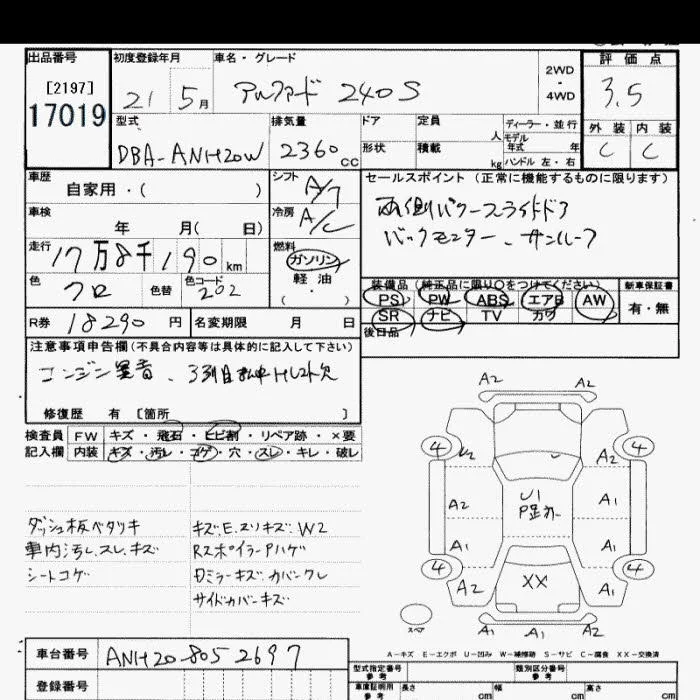 出品番号 初度登録年月 車名・グレード 評価点
[2197] 2WD
17019 21 5月 アルファード 240S ・ 3.5
4WD
型式 排気量 ドア 定員 ディーラー・並行 外装 内装
人 モデル年式 年
DBA-ANH20W 2360cc 形状 積載 kg ハンドル 左・右 C C
車歴 自家用・( ) シフト A/T セールスポイント (正常に機能するものに限ります)
車検 年 月( 日) 冷房 A/C 両側パワースライドドア
バックモニター、サンルーフ
走行 17万8千190km 燃料 ガソリン
軽油
( ・ )
色 クロ 色替 色コード 202
装備品 (純正品に限り○をつけてください) 新車保証書
PS PW ABS エアB AW 有・無
SR ナビ TV カワ
R券 18290円 名変期限 月 日 後日品
注意事項申告欄(不具合内容等は具体的に記入して下さい)
エンジン異音、3列目
修復歴 有 [箇所 ]
検査員 FW キズ・飛石・ヒビ割・リペア跡・×要
記入欄 内装 キズ・汚レ・コゲ・穴・スレ・キレ・破レ
ダッシュ板ベタツキ キズ.E.スリキズ.W2
車内汚レ.スレ.キズ RスポイラーPハゲ
シートコゲ Dミラーキズ.カバンクレ
サイドカバーキズ
A2 A2
4 W2 A2 4
A2 U1 A1
A1 A1
4 A2 XX A1 4
スペア A1 A1 A2
A-キズ E-エクボ U-凹み W-補修跡 S-サビ C-腐食 XX-交換済
車台番号 ANH20-8052697
登録番号
型式指定番号 参考 類別区分番号 参考
車庫証明用 参考 長さ cm 幅 cm 高さ cm